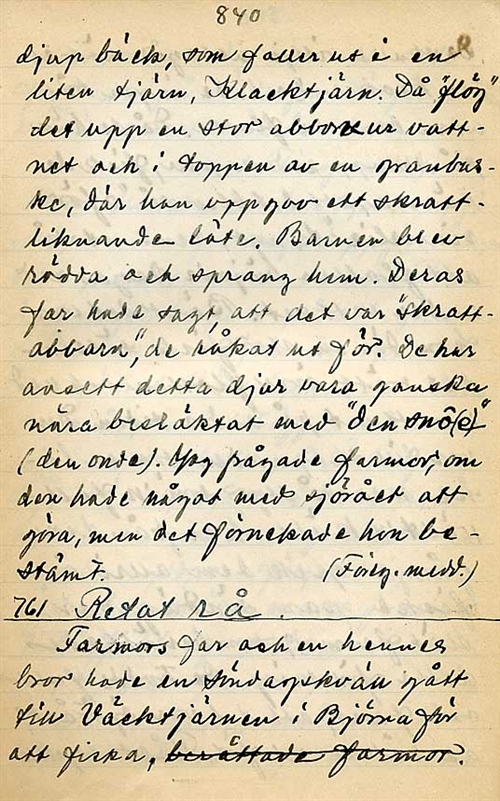 840
djup bäck, som faller ut i en
liten tjärn, Klacktjärn. Då "flög"
det upp en stor abborre ur vatt-
net och i toppen av en granbus-
ke, där han uppgav ett skratt-
liknande läte. Barnen blev
rädda och sprang hem. Deras
far hade sagt, att det var "skratt-
abborn", de råkat ut för. De har
ansett detta djur vara ganska
nära besläktat med "den snö(e)"
(den onde). Jag frågade farmor, om
den hade något med sjörået att
göra, men det förnekade hon be-
stämt. (Föreg. medd.)
761 Retat rå.
Farmors far och en hennes
bror hade en söndagskväll gått
till Väcktjärnen i Björna för
att fiska, berättade farmor.